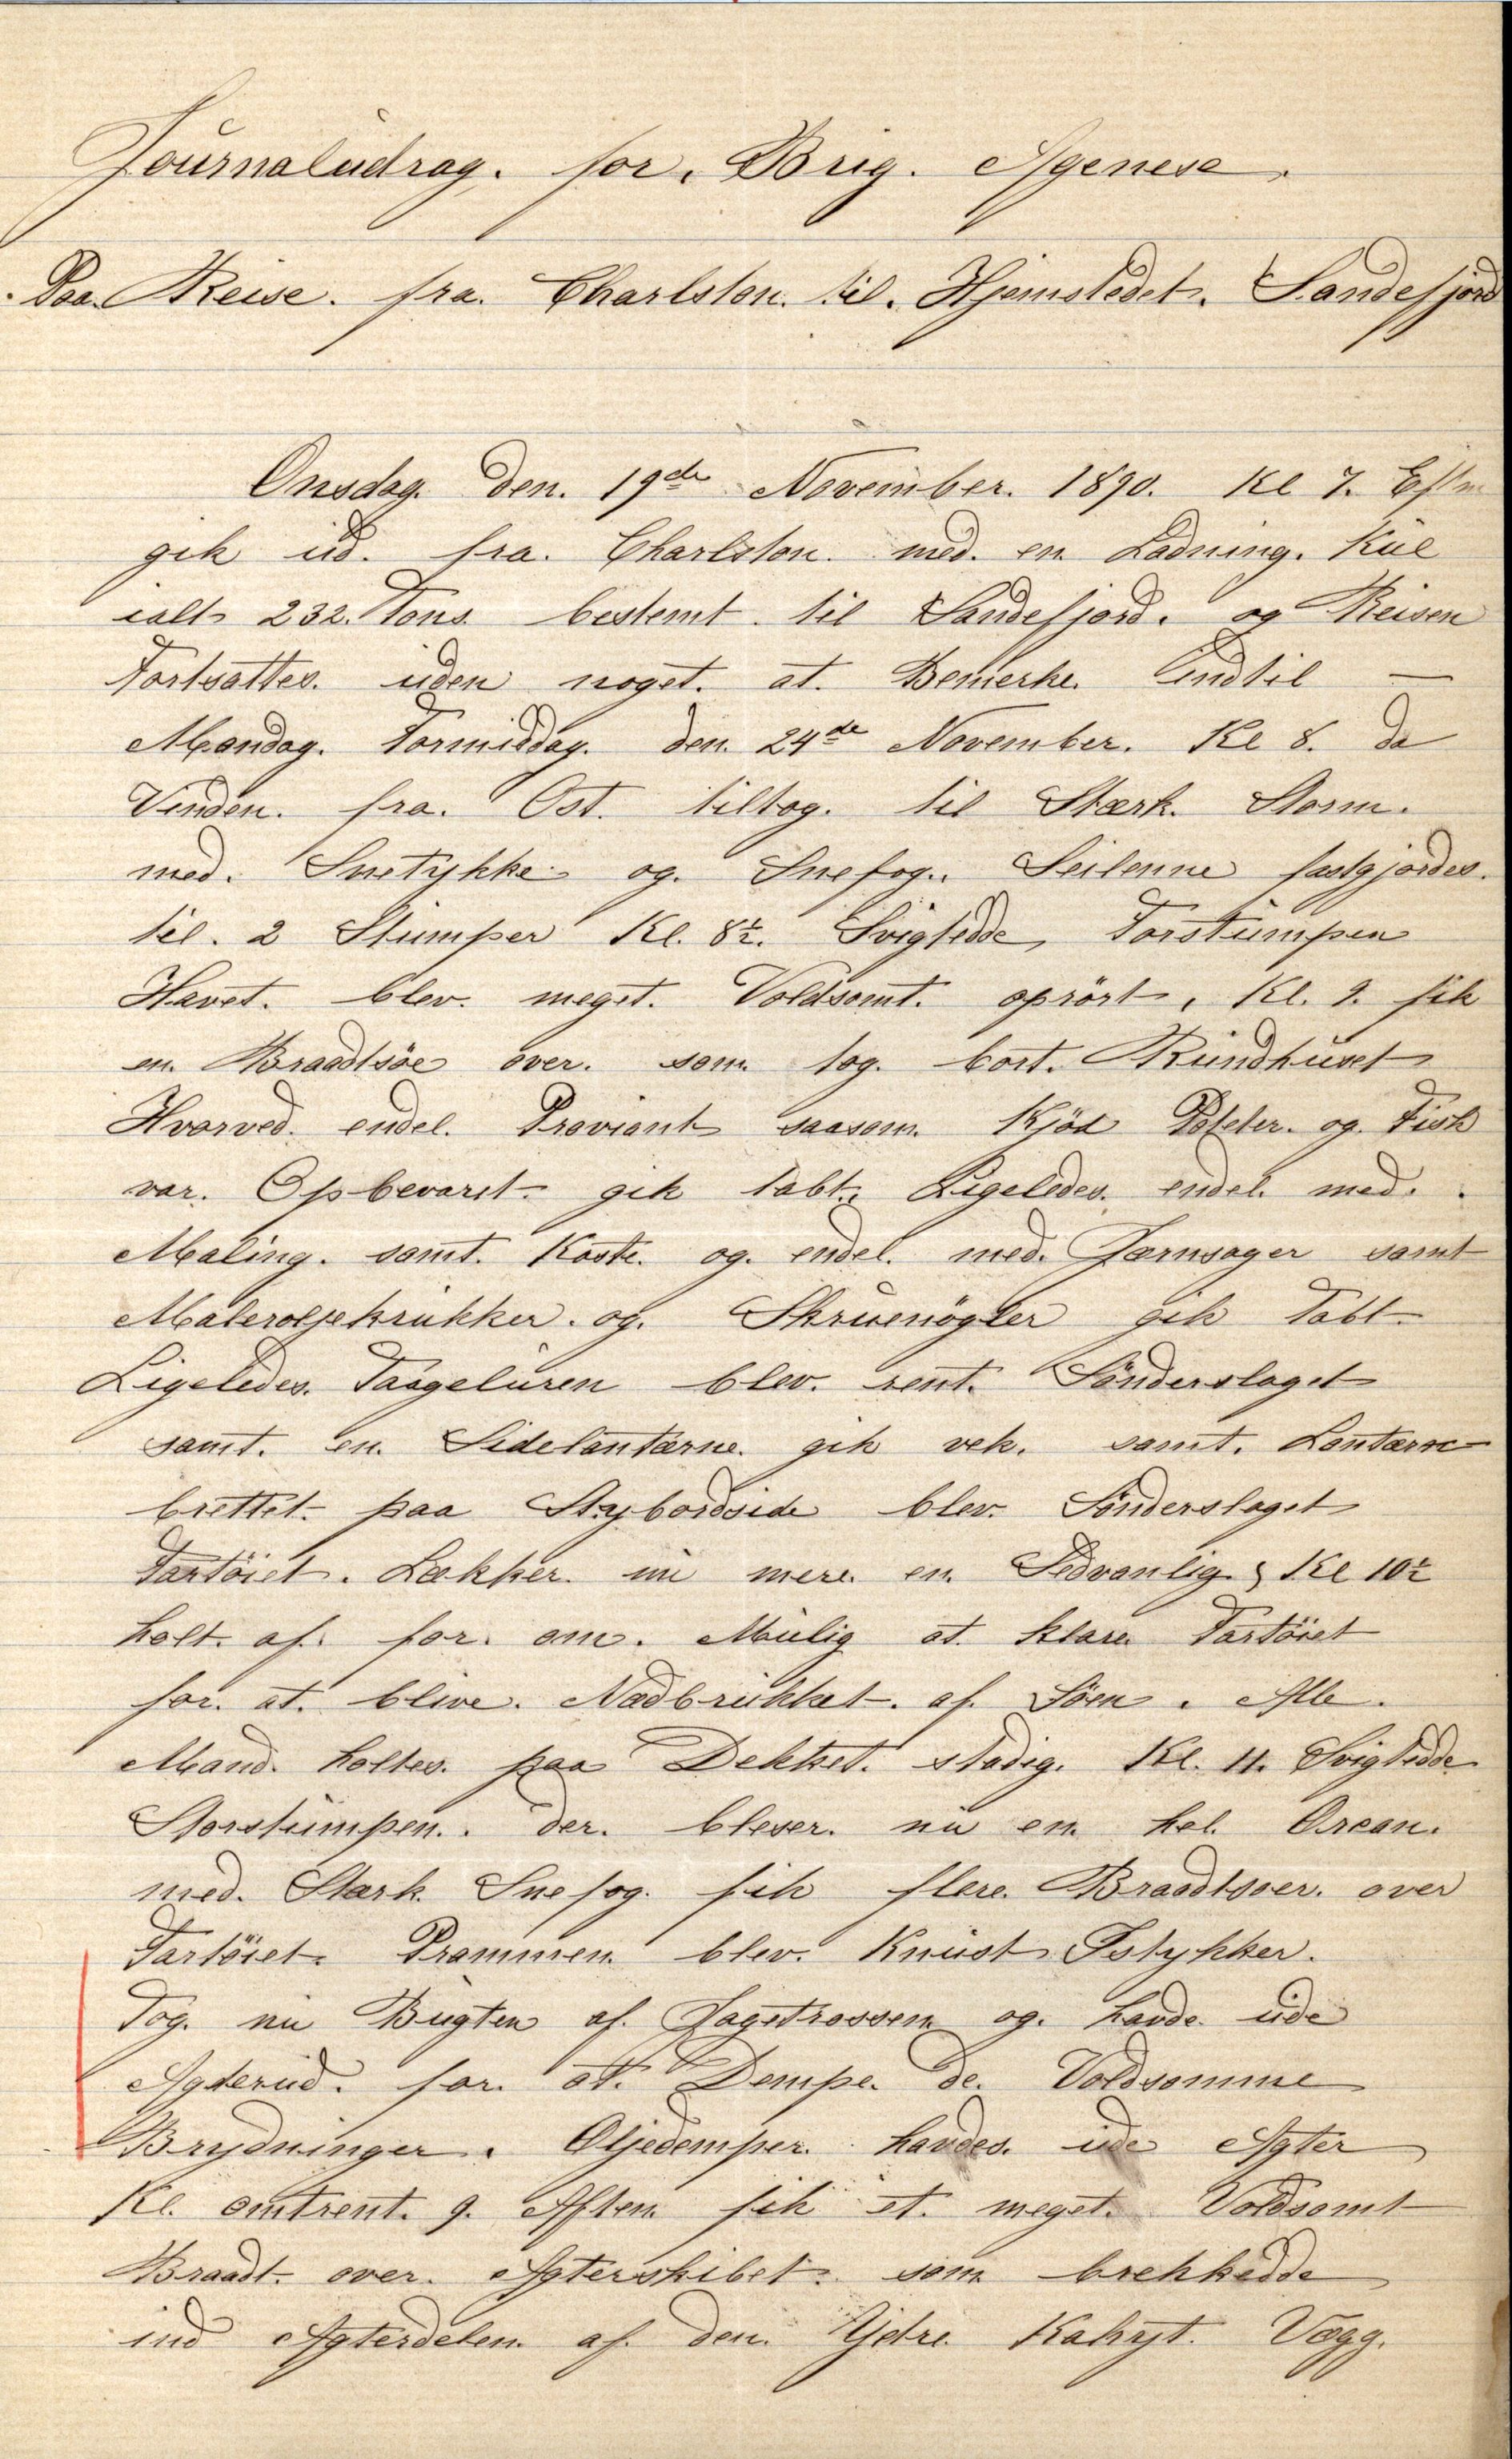 Journaludrag. for. Brig. Agenese.
Paa. Reise. fra. Charlston. til. Hjemstedet. Sandefjord
Onsdag. den. 19de November. 1890. Kl 7. Eftm
gik ud. fra. Charlston. med. en Ladning. Kul
ialt 232. Tons. bestemt. til Sandefjord. og Reisen
Fortsattes. uden noget. at. Bemerke. indtil —
Mandag. Formiddag. den. 24de November. Kl 8. da
Vinden. fra. Ost. tiltog. til Stærk. Storm.
med. Snetykke og. Snefog. Seilenne fastgjordes.
til. 2 Stumper Kl. 8½. Svigtedde, Forstumpen
Havet. blev. meget. Voldsomt. oprört, Kl. 9. fik
en. Braadtsöe over. som. tog. bort. Rundhuset
Hvorved. endel. Proviant saasom. Kjöd Poteter. og. Fisk
var. Opbevaret. gik tabt. Ligeledes. endel. med.
Maling. samt. Koste. og. endel. med. Jærnsager samt
Maleroljekrukker. og. Skruenögler gik Tabt
Ligeledes. Taageluren blev. rent. Sönderslaget
samt. en. Sidelantærne. gik vek. samt. Lantærne-
brettet. paa Stybordside blev. Sönderslaget
Fartöiet. Lækker. nu mere. en. Sedvanlig, Kl 10½
holt. af. for. om. Mulig at. klare. Fartöiet
for. at. blive. Nædbrukket. af. Söen. Alle.
Mand. holtes. paa Dekket. stadig. Kl. 11. Svigtedde
Storstumpen. der. bleser. nu en. hel. Orcan.
med. Stærk. Snefog. fik flere. Braadtsoer. over
Fartöiet. Prammen. blev. Knust Istykker.
Tog. nu Bugten af. Jagetrossen og. havde. ude
Agterud. for. at. Dempe. de. Voldsomme
Brydninger. Oljedemper. havdes. ude Agter
Kl. omtrent. 9. Aften. fik et. meget. Voldsomt
Braadt. over. Agterskibet. som brekkedde
ind Agterdelen. af. den. Ydre. Kahyt. Vægg.